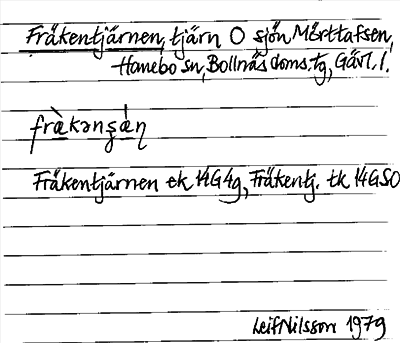 Fräkentjärnen, tjärn O sjön Mörttafsen,
Hanebo sn, Bollnäs doms. tg, Gävl. l.
fràkənʂǽɳ
Fräkentjärnen ek 14G4g, Fräkentj. tk 14GSO
Leif Nilsson 1979